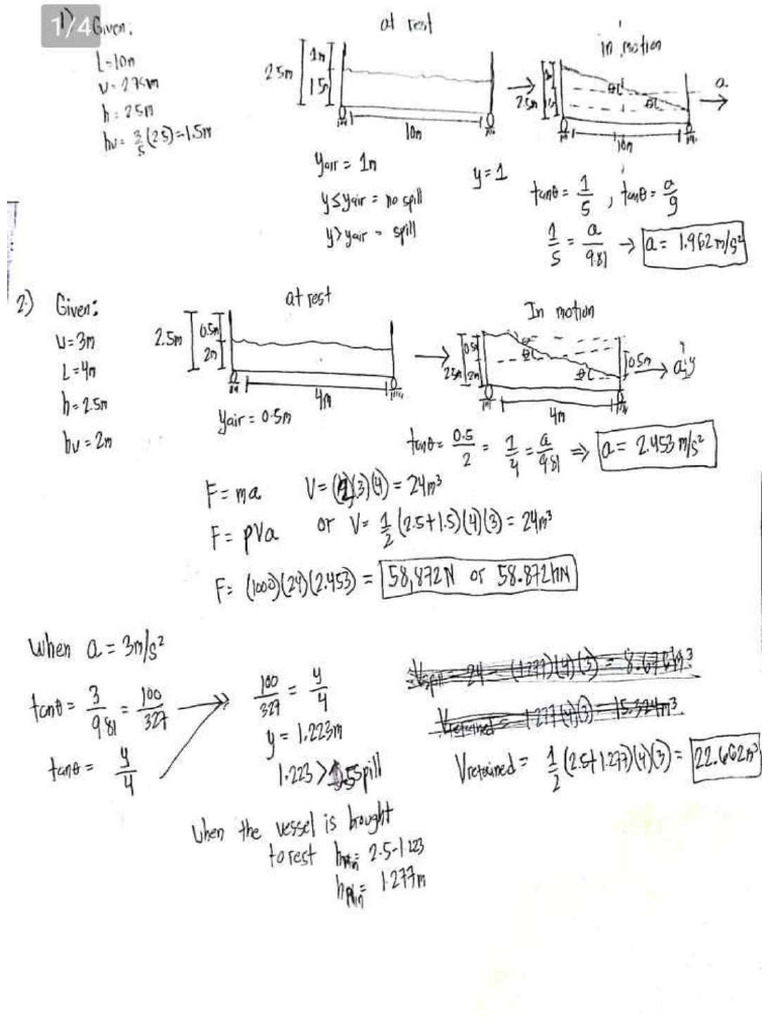 1/4
1) Given:
L=10m
w=2.75m
h=2.5m
hw= 3/5 (2.5)=1.5m
at rest
2.5m
1m
1.5m
10m
in motion
2.5m
θ
θ
10m
a
yair = 1m
y≤yair = no spill
y>yair = spill
y=1
tanθ= 1/5 , tanθ= a/g
1/5 = a/9.81 → a= 1.962 m/s²
2) Given:
w=3m
L=4m
h=2.5m
hw=2m
at rest
2.5m
0.5m
2m
4m
yair=0.5m
In motion
2.5m
0.5m
2m
θ
θ
0.5m
y
a
4m
tanθ= 0.5/2 = 1/4 = a/9.81 ⇒ a= 2.453 m/s²
F=ma
V=(2)(3)(4)=24m³
F=ρVa
or V= 1/2 (2.5+1.5)(4)(3)=24m³
F= (1000)(24)(2.453) = 58,872N or 58.872kN
When a=3m/s²
tanθ= 3/9.81 = 100/327
tanθ= y/4
100/327 = y/4
y=1.223m
1.223>0.5 spill
Vspill = 24 - (1.277)(4)(3) = 8.676m³
Vretained = 1.277(4)(3) = 15.324m³
Vretained= 1/2 (2.5+1.277)(4)(3)= 22.662m³
When the vessel is brought
to rest hmin= 2.5-1.223
hmin= 1.277m